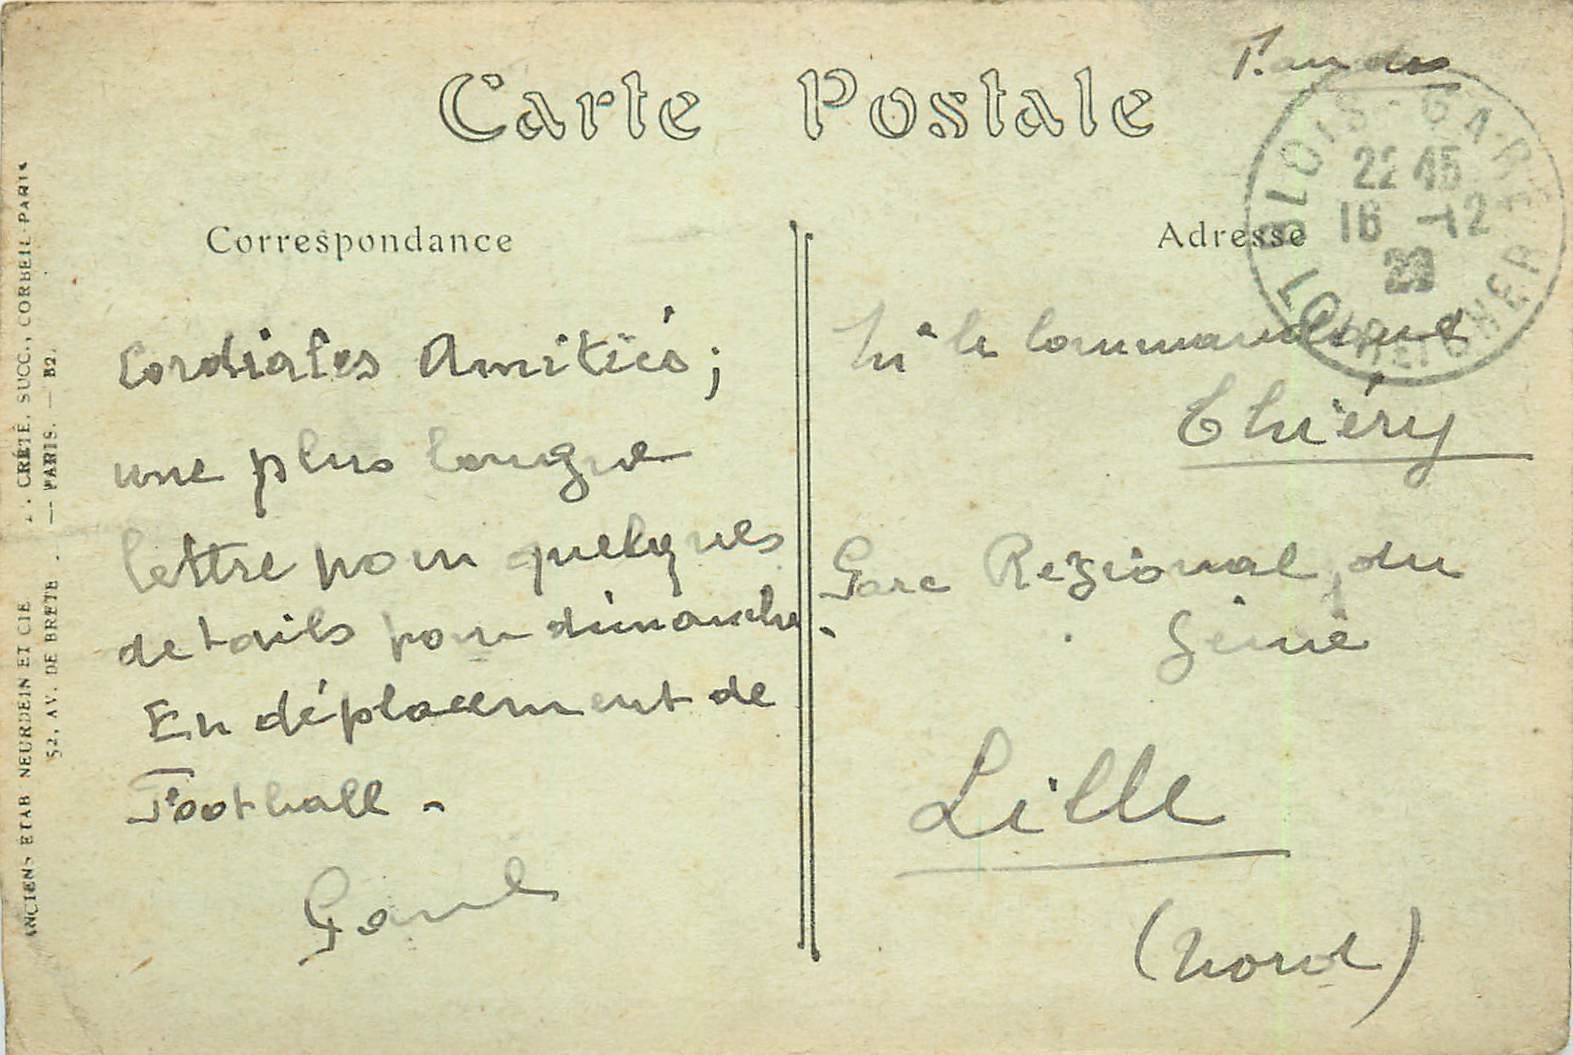 Carte Postale
BLOIS - GARE
22 45
16 -12
LOIR ET CHER
Correspondance
Adresse
Cordiales Amitiés ;
une plus longue
lettre pour quelques
details pour dimanche.
En déplacement de
Football -
Paul
Mr le Commandant
Thiéry
Parc Régional du
Génie
Lille
(Nord)
ANCIENS ETAB NEURDEIN ET CIE CRÉTÉ, SUCC., CORBEIL-PARIS
52, AV. DE BRETE — PARIS. — B2.